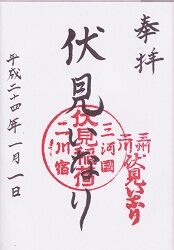 奉拝
三州
二川
伏見いなり
伏見いなり
三河國
伏見稲荷
二川宿
平成二十四年一月一日